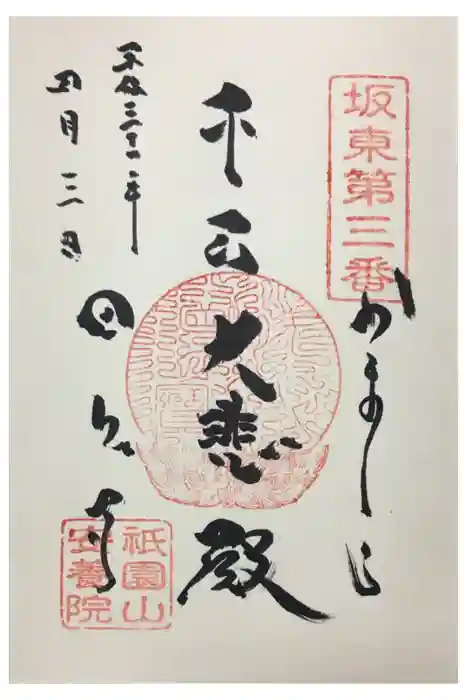 坂東第三番
かまくら
千手大悲殿
田代寺
平成三十一年
四月三日
祇園山
安養院